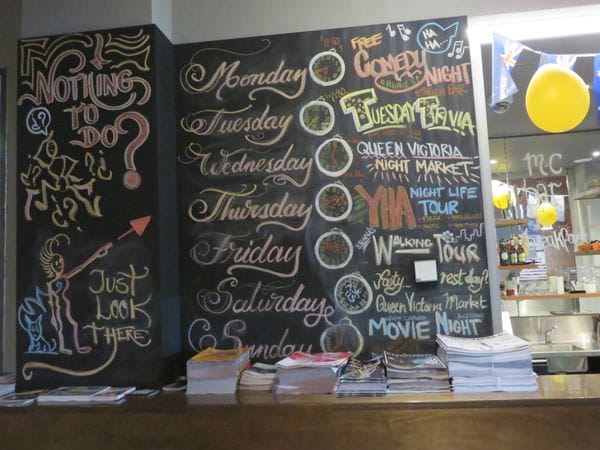 NOTHING
TO
DO?
JUST
LOOK
THERE
Monday
FREE
COMEDY
NIGHT
HA
HA
Tuesday
TUESDAY TRIVIA
Wednesday
QUEEN VICTORIA
NIGHT MARKET
Thursday
YHA
NIGHT LIFE
TOUR
Friday
WALKING
TOUR
Saturday
rest day?
Queen Victoria Market
Sunday
MOVIE NIGHT